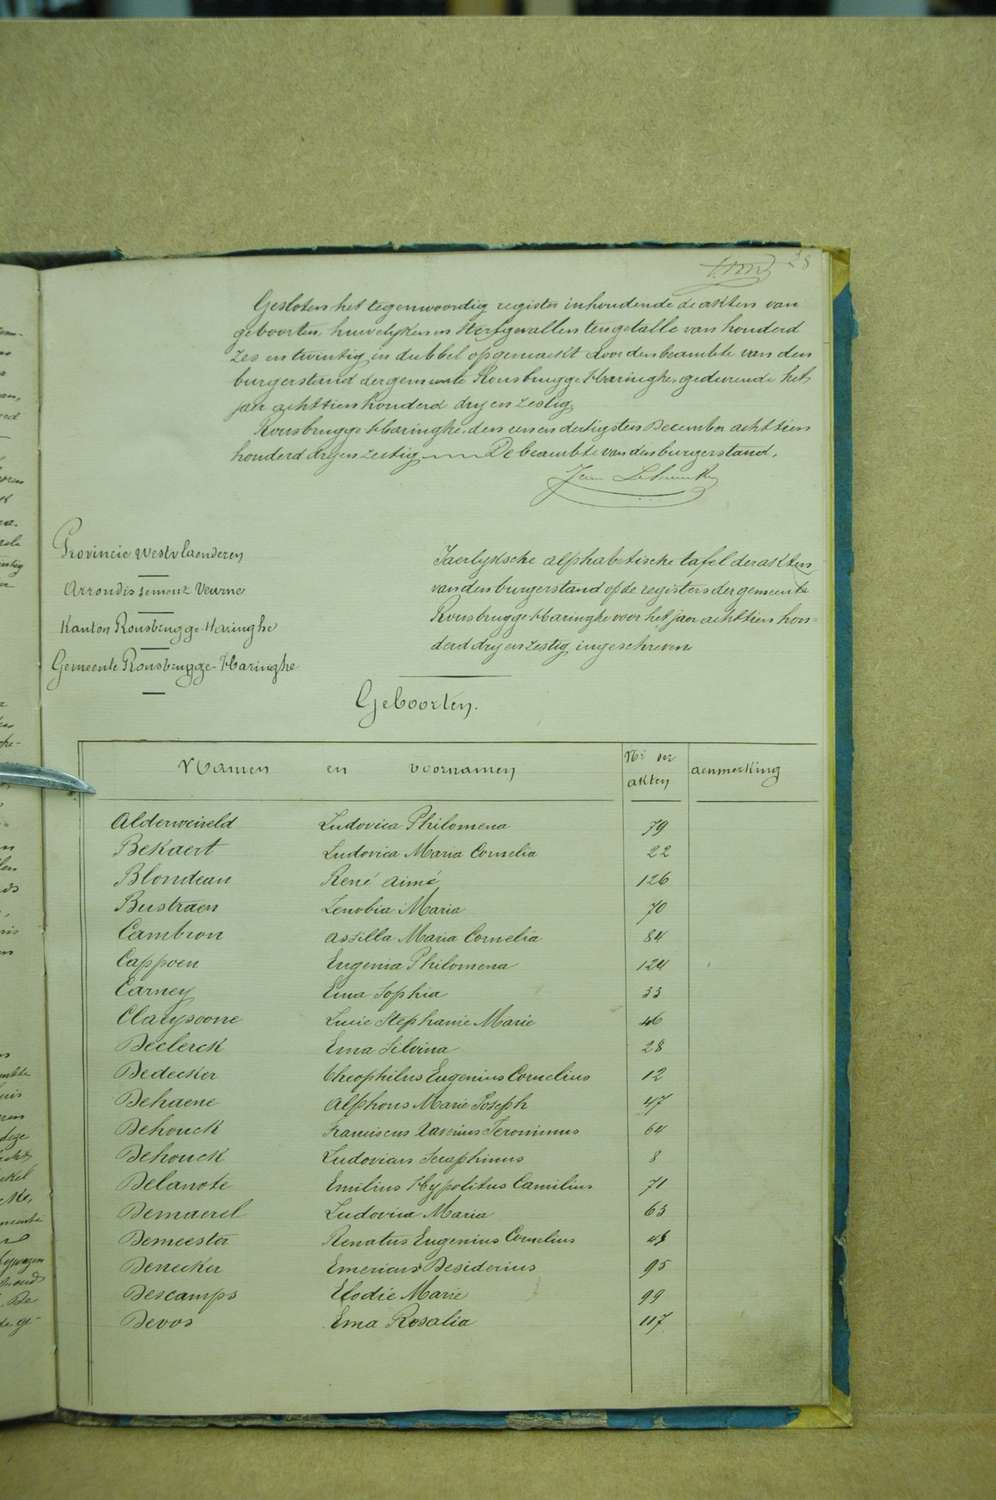 28
Gesloten het tegenwoordig register inhoudende de akten van
geboorten, huwelyken en sterfgevallen ten getalle van honderd
zes en twintig, in dubbel opgemaekt door den beambte van den
burgerstand der gemeente Rousbrugge-Haringhe, gedurende het
jaer achttien honderd dry en zestig,
Rousbrugge-Haringhe, den een en dertigsten December achttien
honderd dry en zestig. De beambte van den burgerstand,
Provincie Westvlaenderen
Arrondissement Veurne
Kanton Rousbrugge-Haringhe
Gemeente Rousbrugge-Haringhe
Jaerlyksche alphabetische tafel der akten
van den burgerstand op de registers der gemeente
Rousbrugge-Haringhe voor het jaer achttien hon-
derd dry en zestig, ingeschreven
Geboorten.
Namen en voornamen Nrs der akten aenmerking
Alderweireld Ludovica Philomena 79
Bekaert Ludovica Maria Cornelia 22
Blondeau René Aimé 126
Bustraen Zenobia Maria 70
Cambron Assilla Maria Cornelia 84
Cappoen Eugenia Philomena 124
Carney Ema Sophia 33
Claeysoone Lucie Stephanie Marie 46
Declerck Ema Silvina 28
Dedecker Theophilus Eugenius Cornelius 12
Dehaene Alphons Marie Joseph 47
Dehouck Franciscus Xaverius Jeronimus 64
Dehouck Ludovicus Seraphinus 8
Delanote Emilius Hypolitus Camilius 71
Demaerel Ludovica Maria 63
Demeester Renatus Eugenius Cornelius 48
Denecker Emericus Desiderius 95
Descamps Elodie Marie 99
Devos Ema Rosalia 117